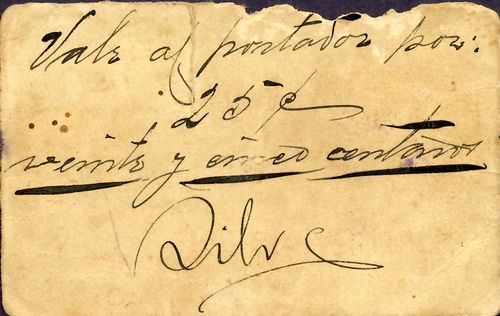 Vale al portador por:
25¢
veinte y cinco centavos
Silva